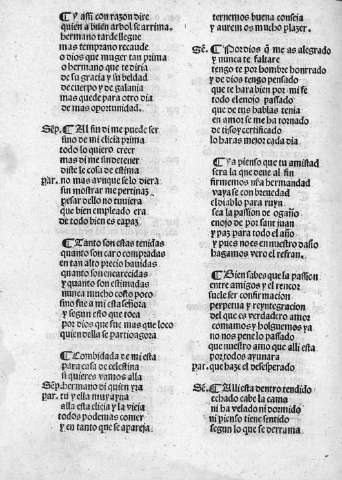 ¶ Y assi con razon dize
quien a buen arbol se arrima.
hermano tarde llegue
mas temprano recaude
o dios que muger tan prima
o hermano que te diria
de su gracia y su beldad
de cuerpo y de galania
mas quede para otro dia
de mas oportunidad.
Sēp. ¶ Al fin di me puede ser
sino de mi elicia prima
todo lo quiero creer
mas di me sin detener
diste le cosa de estima
par. no mas avnque se lo diera
sin mostrar me pertinaz
pesar dello no tuuiera
que bien empleado era
de todo bien es capaz
¶ Tanto son estas tenidas
quanto son caro compradas
en tan alto precio hauidas
quanto son encarecidas
y quanto son estimadas
nunca mucho costo poco
sino fue a mi esta señora
y segun esto que toca
por dios que fue mas que loco
quien della se partio agora
¶ Combidada de mi esta
para casa de celestina
si quieres vamos alla
Sēp. hermano di quien ya
par. tu y ella muy ayna
alla esta elicia y la vieja
todos podemos comer
y en tanto que se apareja
ternemos buena conseja
y auremos mucho plazer.
Sē. ¶ Por dios q̄ me as alegrado
y nunca te faltare
tengo te por hombre honrrado
y de dios tengo pensado
que te hara bien por mi fe
todo el enojo passado
que de tus hablas tenia
en amor se me ha tornado
de ti soy certificado
lo haras mejor cada dia
¶ Ya pienso que tu amistad
sera la que deue al fin
firmemos n̄ra hermandad
vaya se con breuedad
el diablo para ruyn
sea la passion de ogaño
enojo de por sant juan
y paz para todo el año
y pues no es en nuestro daño
hagamos vero el refran.
¶ Bien sabes que la passion
entre amigos y el rencor
suele ser confirmacion
perpetua y reyntegracion
del que es verdadero amor
comamos y holguemos ya
no nos pene lo passado
que nuestro amo que alli esta
por todos ayunara
par. que haze el desesperado
Sē. Alli esta dentro tendido
echado cabe la cama
ni ha velado ni dormido
ni pienso tiene sentido
segun lo que se derrama